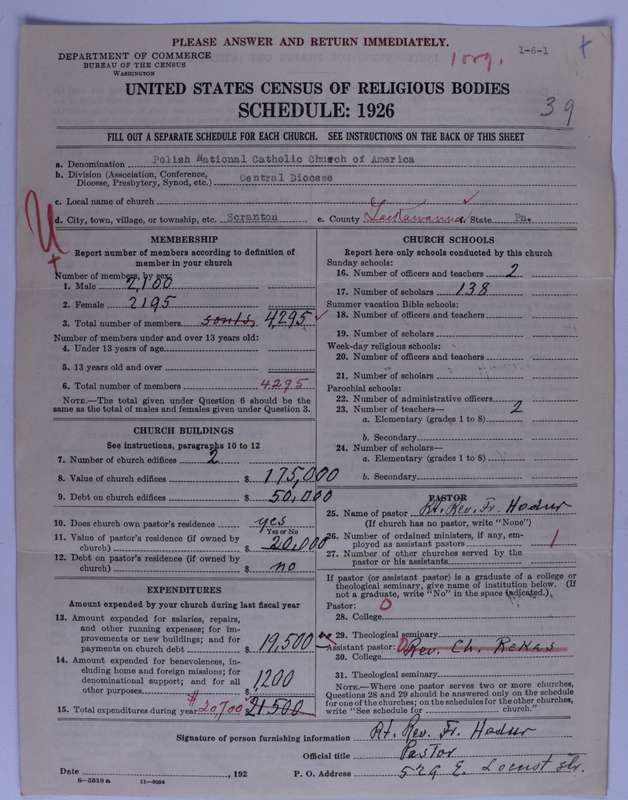 PLEASE ANSWER AND RETURN IMMEDIATELY.
DEPARTMENT OF COMMERCE
BUREAU OF THE CENSUS
WASHINGTON
1 org.
1-6-1
+
UNITED STATES CENSUS OF RELIGIOUS BODIES
SCHEDULE: 1926
39
FILL OUT A SEPARATE SCHEDULE FOR EACH CHURCH. SEE INSTRUCTIONS ON THE BACK OF THIS SHEET
a. Denomination Polish National Catholic Church of America
b. Division (Association, Conference, Diocese, Presbytery, Synod, etc.) Central Diocese
c. Local name of church
d. City, town, village, or township, etc. Scranton e. County Lackawanna State Pa.
U
+
MEMBERSHIP
Report number of members according to definition of
member in your church
Number of members, by sex:
1. Male 2,100
2. Female 2195
3. Total number of members souls, 4,295
Number of members under and over 13 years old:
4. Under 13 years of age
5. 13 years old and over
6. Total number of members 4295
NOTE.—The total given under Question 6 should be
same as the total of males and females given under Question 3.
CHURCH BUILDINGS
See instructions, paragraphs 10 to 12
7. Number of church edifices 2
8. Value of church edifices $ 175,000
9. Debt on church edifices $ 50,000
10. Does church own pastor's residence yes
Yes or No
11. Value of pastor's residence (if owned by
church) $ 20,000
12. Debt on pastor's residence (if owned by
church) $ no
EXPENDITURES
Amount expended by your church during last fiscal year
13. Amount expended for salaries, repairs,
and other running expenses; for im-
provements or new buildings; and for
payments on church debt $ 19,500
14. Amount expended for benevolences, in-
cluding home and foreign missions; for
denominational support; and for all
other purposes $ 1200
15. Total expenditures during year $20,700 21500
CHURCH SCHOOLS
Report here only schools conducted by this church
Sunday schools:
16. Number of officers and teachers 2
17. Number of scholars 138
Summer vacation Bible schools:
18. Number of officers and teachers
19. Number of scholars
Week-day religious schools:
20. Number of officers and teachers
21. Number of scholars
Parochial schools:
22. Number of administrative officers
23. Number of teachers— 2
a. Elementary (grades 1 to 8)
b. Secondary
24. Number of scholars—
a. Elementary (grades 1 to 8)
b. Secondary
PASTOR
25. Name of pastor Rt. Rev. Fr. Hodur
(If church has no pastor, write "None")
26. Number of ordained ministers, if any, em-
ployed as assistant pastors 1
27. Number of other churches served by the
pastor or his assistants
If pastor (or assistant pastor) is a graduate of a college or
theological seminary, give name of institution below. (If
not a graduate, write "No" in the space indicated.)
Pastor: 0
28. College
29. Theological seminary
Assistant pastor: 0 Rev. Ch. Rekas
30. College
31. Theological seminary
NOTE.—Where one pastor serves two or more churches,
Questions 28 and 29 should be answered only on the schedule
for one of the churches; on the schedules for the other churches,
write "See schedule for church."
Signature of person furnishing information Rt. Rev. Fr. Hodur
Official title Pastor
Date , 192 P. O. Address 529 E. Locust Str.
8—5518 a 11—9054